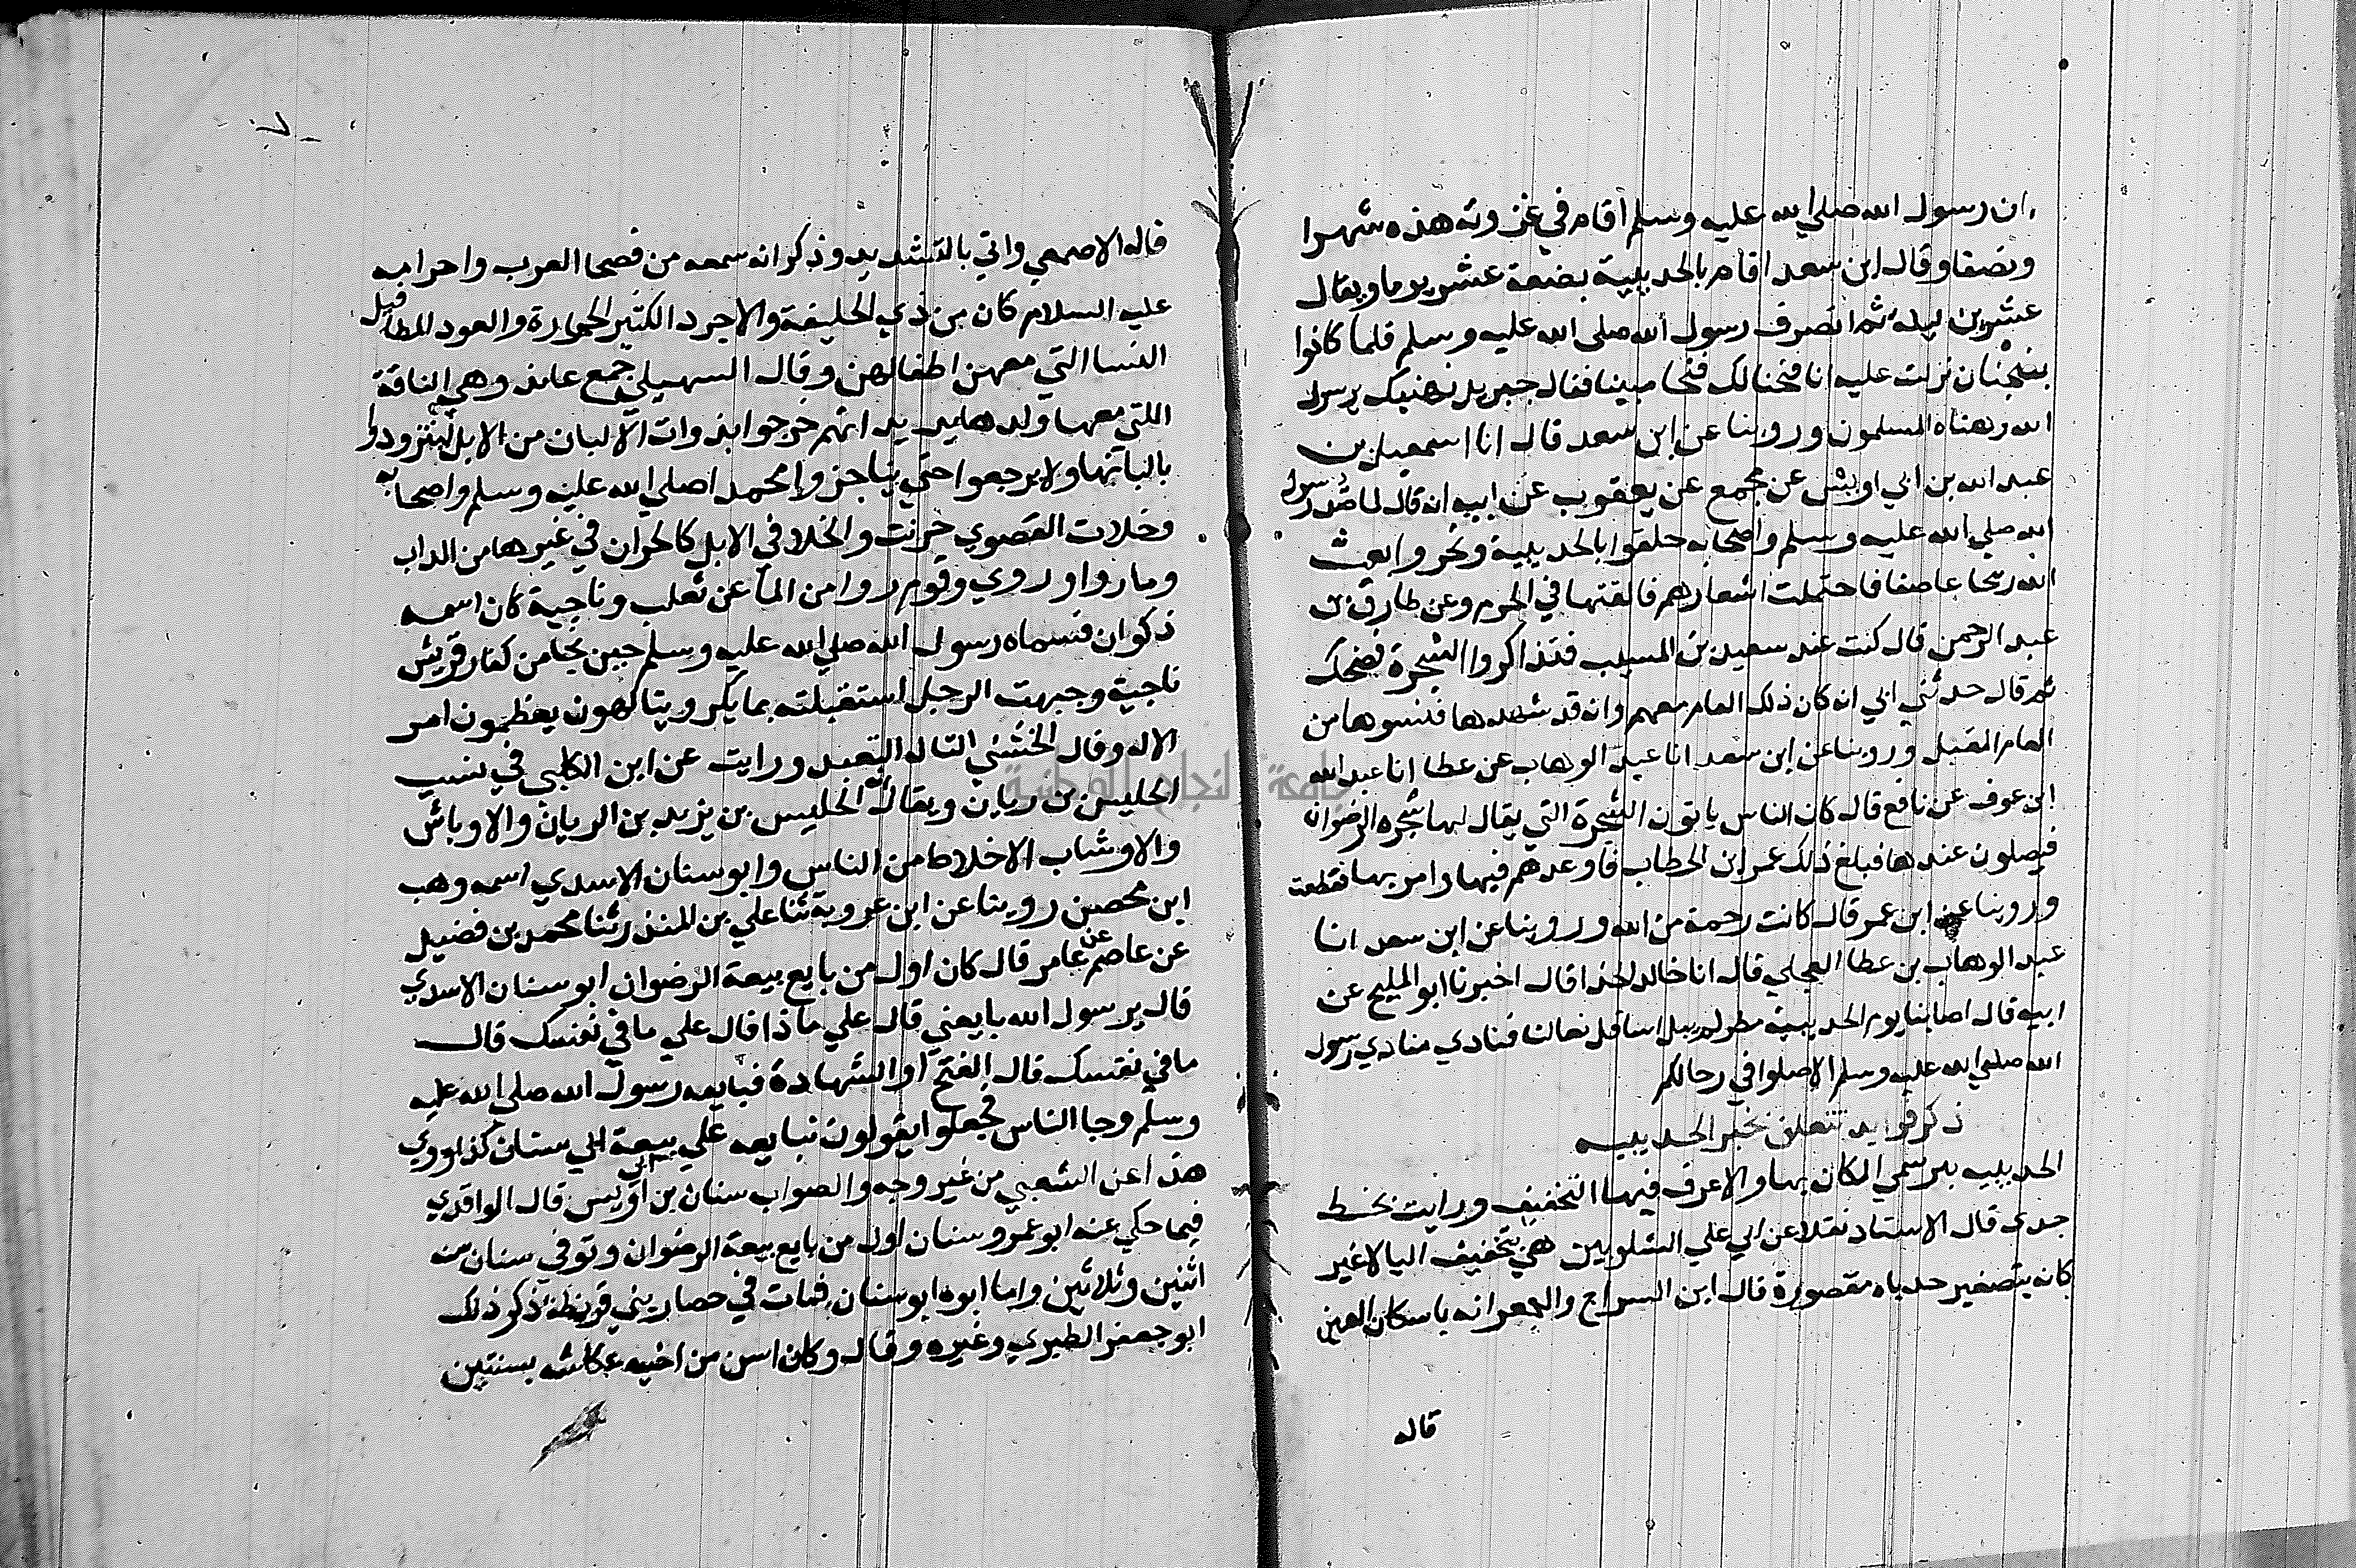 ان رسول الله صلي الله عليه وسلم أقام في غزوته هذه شهرا
ونصفا وقال ابن سعد اقام بالحديبية بضعة عشر يوما ويقال
عشرين ليلة ثم انصرف رسول الله صلى الله عليه وسلم فلما كانوا
بضجنان نزلت عليه انا فتحنا لك فتحا مبينا فقال جبريل نهنيك يرسول
الله وهناه المسلمون وروينا عن ابن سعد قال انا اسمعيل بن
عبد الله بن ابي اويس عن مجمع عن يعقوب عن ابيه انه قال لما صدر رسول
الله صلي الله عليه وسلم واصحابه حلقوا بالحديبية ونحروا بعث
الله ريحا عاصفا فاحتملت اشعارهم فالقتها في الحرم وعن طارق بن
عبد الرحمن قال كنت عند سعيد بن المسيب فتذاكروا الشجرة فضحك
ثم قال حدثني ابي انه كان ذلك العام معهم وانه قد شهدها فنسوها من
العام المقبل وروينا عن ابن سعد انا عبد الوهاب عن عطا انا عبد الله
ابن عوف عن نافع قال كان الناس ياتون الشجرة التي يقال لها شجره الرضوان
فيصلون عندها فبلغ ذلك عمر ابن الخطاب فاوعدهم فيها وامر بها فقطعت
وروينا عن ابن عمر قال كانت رحمة من الله وروينا عن ابن سعد انا
عبد الوهاب بن عطا العجلي قال انا خالد الحذا قال اخبرنا ابو المليح عن
ابيه قال اصابنا يوم الحديبية مطر لم يبل اسافل نعالنا فنادي منادي رسول
الله صلي الله عليه وسلم الا صلوا في رحالكم
ذكر فوايد تتعلق بخبر الحديبيه
الحديبيه بير سمي المكان بها والاعرف فيها التخفيف ورايت بخط
جدي قال الاستاد نقلا عن ابي علي الشلوبين هي بتخفيف اليا لا غير
كانه بتصغير حدباه مقصورة قال ابن السراج والجعرانه باسكان العين
قاله
قاله الاصمعي واتي بالتشديد وذكر انه سمعه من فصحا العرب واحرامه
عليه السلام كان من ذي الحليفة والاجرد الكثير الحجارة والعود المطافيل
النسا التي معهن اطفالهن وقال السهيلي جمع عايذ وهي الناقة
اللتي معها ولدها يريد انهم خرجوا بذوات الالبان من الابل ليتزودوا
بالبانها ولا يرجعوا حتي يناجزوا محمدا صلي الله عليه وسلم واصحابه
وخلات القصوي حرنت والخلا في الابل كالحران في غيرها من الداب
وماروا وروي وقوم روا من الما عن ثعلب وناجية كان اسمه
ذكوان فسماه رسول الله صلي الله عليه وسلم حين نجا من كفار قريش
ناجية وجبهت الرجل استقبلته بما يكره ويتالهون يعظمون امر
الاله وقال الخشني التاله التعبد ورايت عن ابن الكلبي في نسب
الحليس بن ريان ويقال الحليس بن يزيد بن الريان والاوباش
والاوشاب الاخلاط من الناس وابو سنان الاسدي اسمه وهب
ابن محصن روينا عن ابن عروبة ثنا علي بن المنذر ثنا محمد بن فضيل
عن عاصم عن عامر قال كان اول من بايع بيعة الرضوان ابو سنان الاسدي
قال يرسول الله بايعني قال علي ماذا قال علي ما في نفسك قال
ما في نفسك قال الفتح او الشهادة فبايعه رسول الله صلي الله عليه
وسلم وجا الناس فجعلوا يقولون نبايعه علي بيعة ابي سنان كذا روي
هذا عن الشعبي من غير وجه والصواب سنان بن ابي اويس قال الواقدي
فيما حكي عنه ابو عمرو سنان اول من بايع بيعة الرضوان وتوفي سنان سنه
اثنين وثلاثين واما ابوه ابو سنان فمات في حصار بني قريظة ذكر ذلك
ابو جعفر الطبري وغيره وقال وكان اسن من اخيه عكاشه بسنتين
جامعة النجاح الوطنية